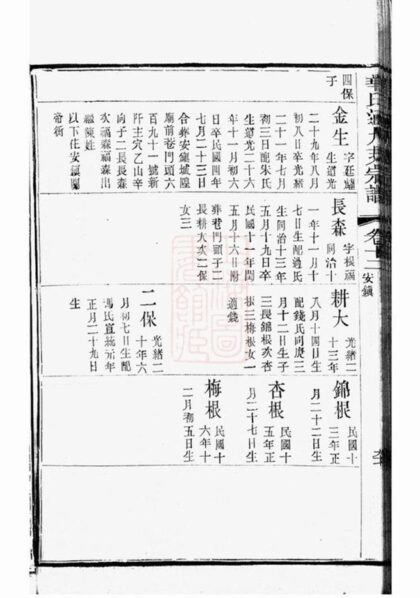 四保
子
金生
字廷
生道光
二十九年八月
初八日卒光緒
二十一年七月
初三日配朱氏
生道光二十六
年十一月初六
日卒民國四年
七月二十三日
合葬安鎮城隍
廟前巷門頭六
百九十一號新
阡主穴乙山辛
向子二長長森
次福森福森出
繼陳姓
以下住安鎮
長森
字根福
同治十
一年十一月十
七日生配過氏
生同治十三年
五月十九日卒
民國十二年閏
五月十六日附
葬巷門頭子二
長耕大次二保
女三
耕大
光緒二
十三年
八月十四日生
配錢氏同庚三
月十二日生子
三長錦根次杏
根三梅根女一
適錢
二保
光緒二
十年六
月初七日生配
馮氏宣統元年
正月二十九日
生
錦根
民國十
三年正
月二十二日生
杏根
民國十
五年正
月二十七日生
梅根
民國十
六年十
二月初五日生
宗譜
卷十二
安鎮